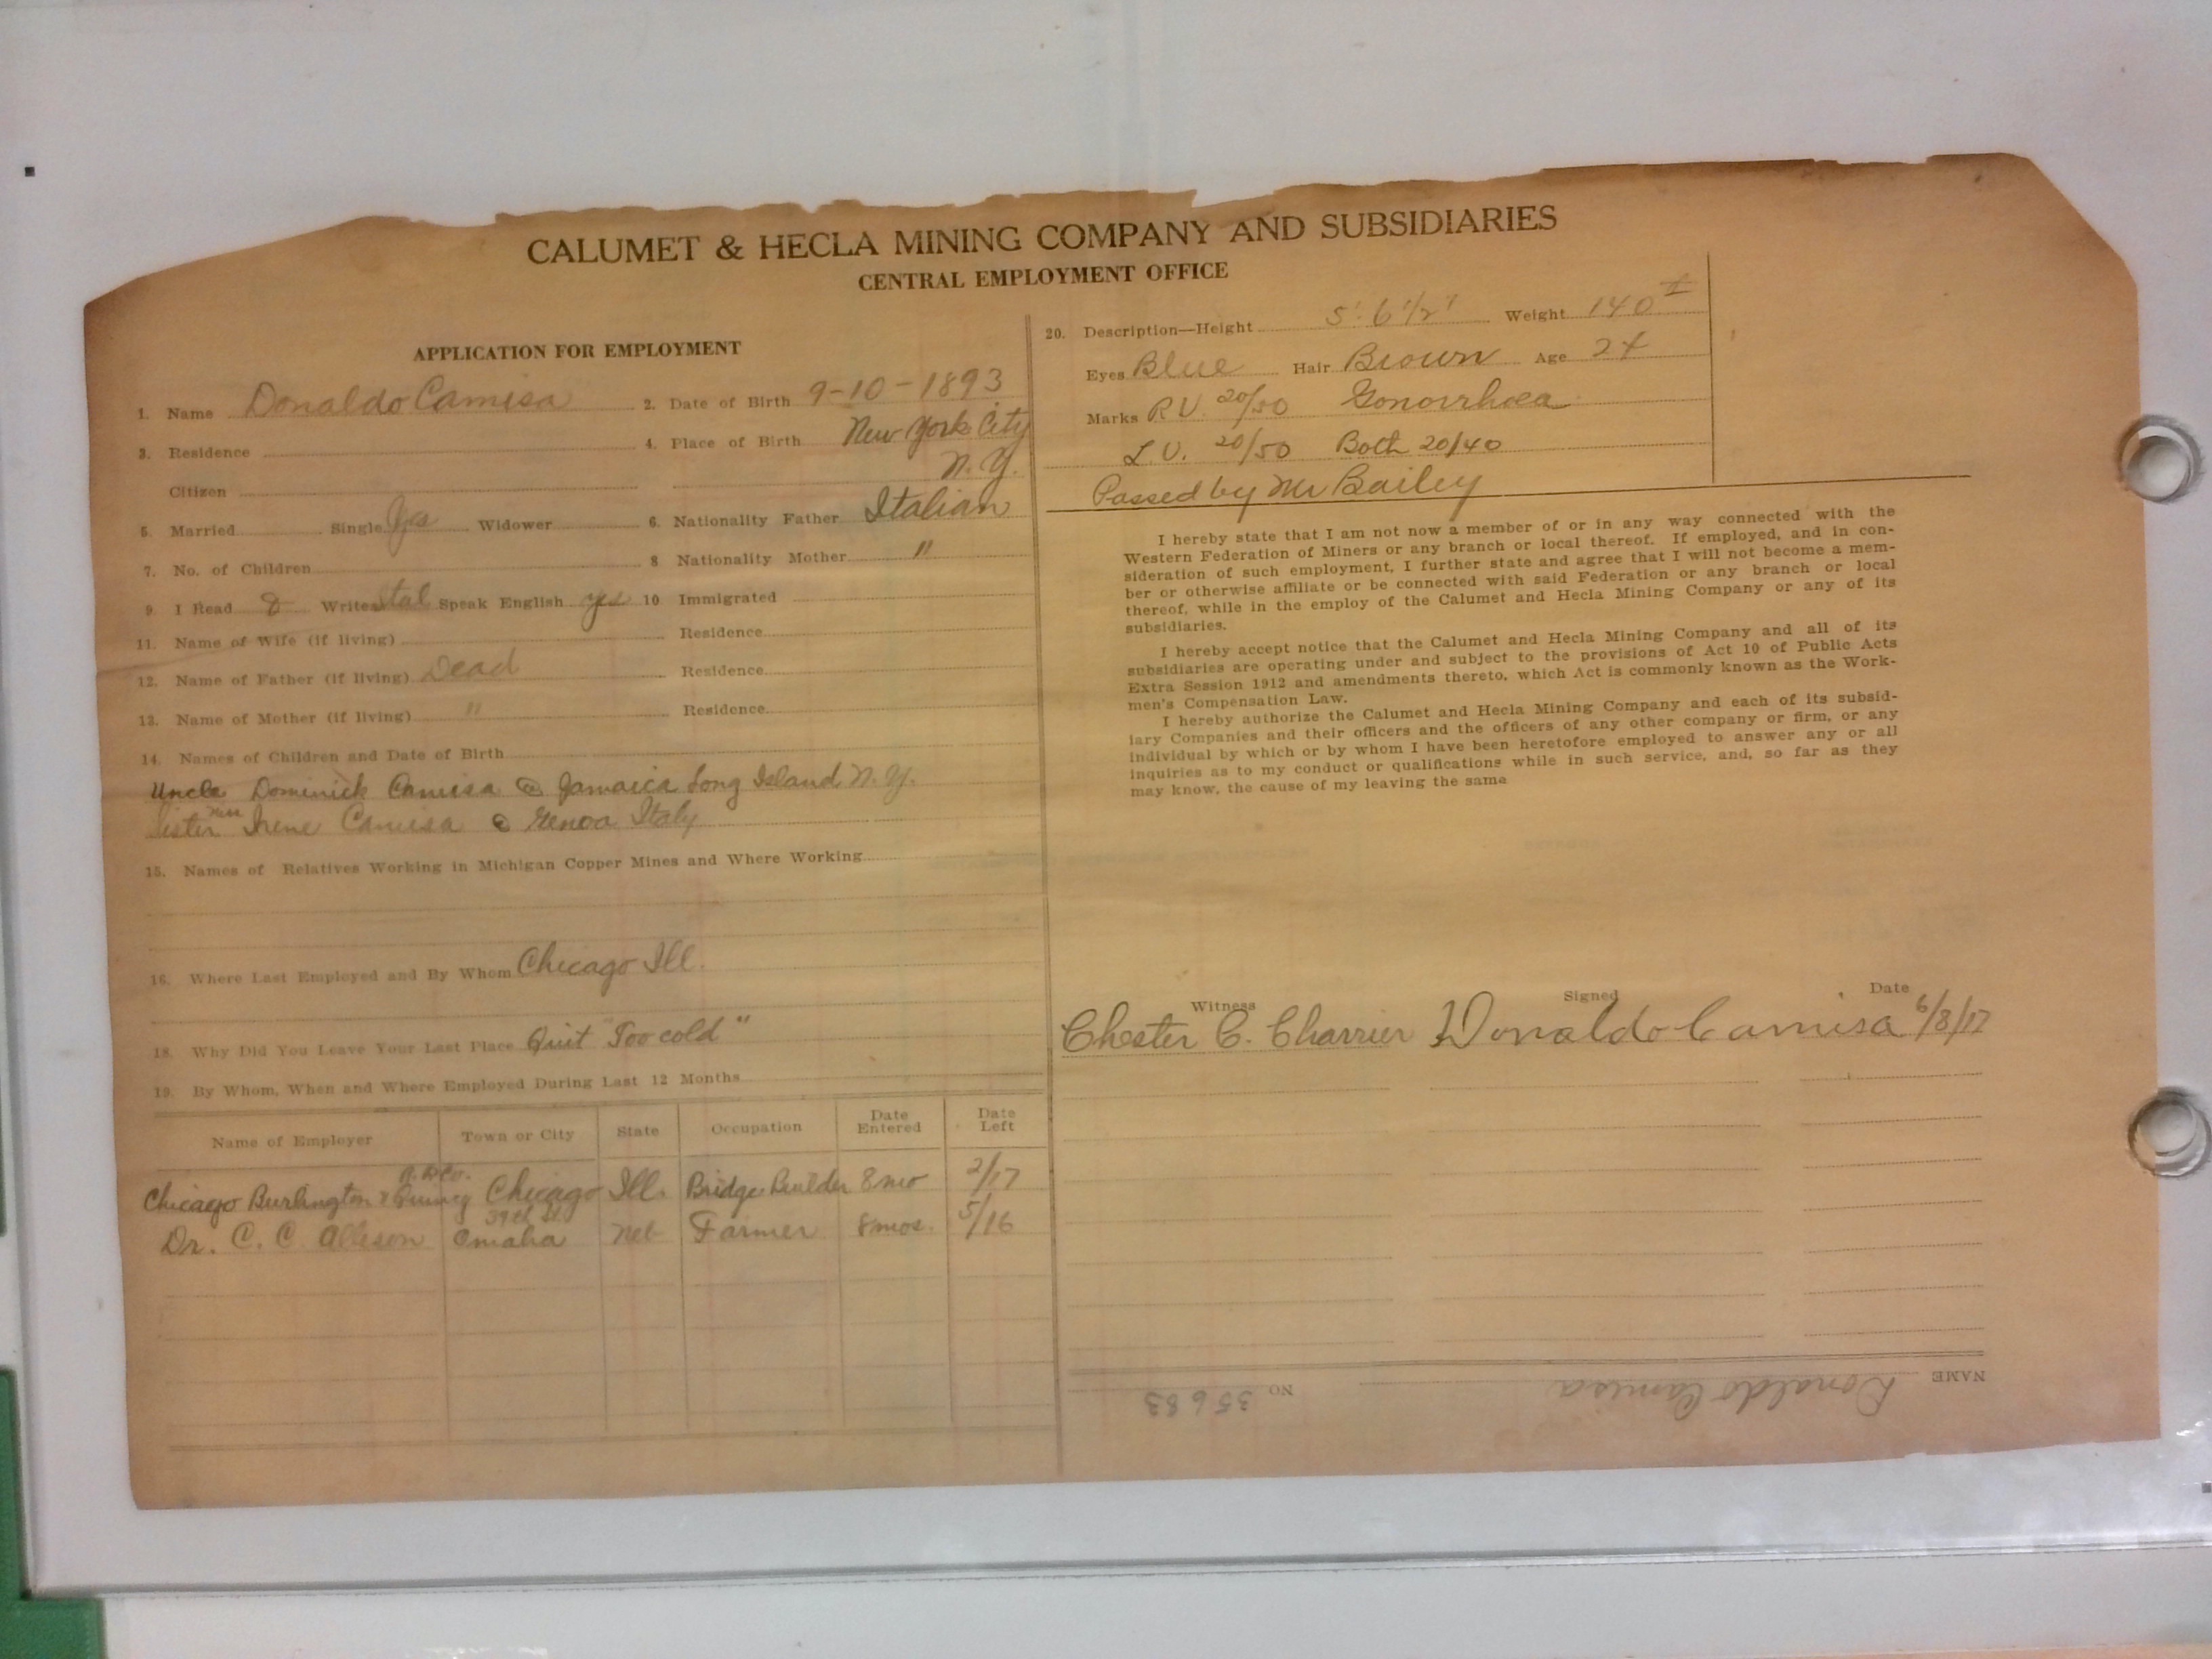 CALUMET & HECLA MINING COMPANY AND SUBSIDIARIES
CENTRAL EMPLOYMENT OFFICE
APPLICATION FOR EMPLOYMENT
1. Name Donaldo Camisa 2. Date of Birth 9-10-1893
3. Residence 4. Place of Birth New York City
N. Y.
Citizen
5. Married Single Yes Widower 6. Nationality Father Italian
7. No. of Children 8 Nationality Mother "
9. I Read & Write Ital Speak English yes 10 Immigrated
11. Name of Wife (if living) Residence
12. Name of Father (if living) Dead Residence
13. Name of Mother (if living) " Residence
14. Names of Children and Date of Birth
Uncle Dominick Camisa @ Jamaica Long Island N. Y.
Sister Miss Irene Camisa @ Genoa Italy
15. Names of Relatives Working in Michigan Copper Mines and Where Working
16. Where Last Employed and By Whom Chicago Ill.
18. Why Did You Leave Your Last Place Quit "Too cold"
19. By Whom, When and Where Employed During Last 12 Months
Name of Employer Town or City State Occupation Date Entered Date Left
Chicago Burlington & Quincy Chicago Ill. Bridge Builder 8 mo 2/17
39th St
Dr. C. C. Allison Omaha Neb Farmer 8 mos. 5/16
20. Description—Height 5' 6 1/2" Weight 140 #
Eyes Blue Hair Brown Age 24
Marks R.V. 20/50 Gonorrhoea
L.V. 20/50 Both 20/40
Passed by Mr Bailey
I hereby state that I am not now a member of or in any way connected with the
Western Federation of Miners or any branch or local thereof. If employed, and in con-
sideration of such employment, I further state and agree that I will not become a mem-
ber or otherwise affiliate or be connected with said Federation or any branch or local
thereof, while in the employ of the Calumet and Hecla Mining Company or any of its
subsidiaries.
I hereby accept notice that the Calumet and Hecla Mining Company and all of its
subsidiaries are operating under and subject to the provisions of Act 10 of Public Acts
Extra Session 1912 and amendments thereto, which Act is commonly known as the Work-
men's Compensation Law.
I hereby authorize the Calumet and Hecla Mining Company and each of its subsid-
iary Companies and their officers and the officers of any other company or firm, or any
individual by which or by whom I have been heretofore employed to answer any or all
inquiries as to my conduct or qualifications while in such service, and, so far as they
may know, the cause of my leaving the same
Witness Signed Date
Chester C. Charrier Donaldo Camisa 6/8/17
NAME Donaldo Camisa NO 35683